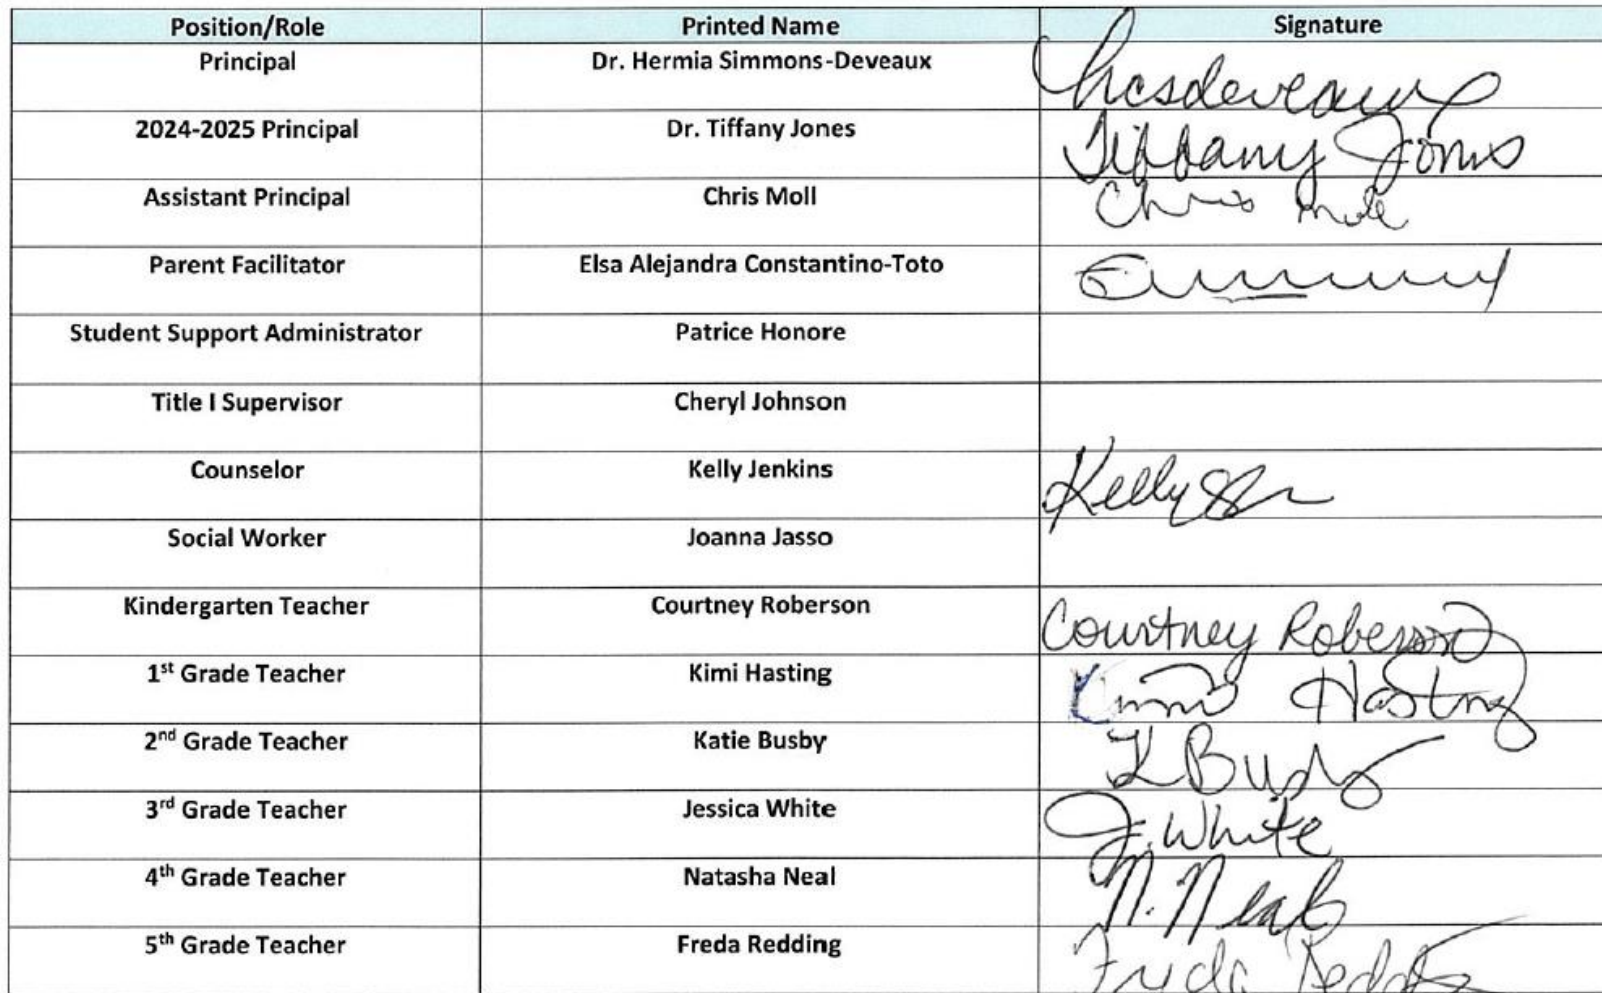 Position/Role Printed Name Signature
Principal Dr. Hermia Simmons-Deveaux hcsdeveaux
2024-2025 Principal Dr. Tiffany Jones Tiffany Jones
Assistant Principal Chris Moll Chris
Parent Facilitator Elsa Alejandra Constantino-Toto
Student Support Administrator Patrice Honore
Title I Supervisor Cheryl Johnson
Counselor Kelly Jenkins Kelly
Social Worker Joanna Jasso
Kindergarten Teacher Courtney Roberson Courtney Roberson
1st Grade Teacher Kimi Hasting Kimi Hasting
2nd Grade Teacher Katie Busby K Busby
3rd Grade Teacher Jessica White J. White
4th Grade Teacher Natasha Neal N. Neal
5th Grade Teacher Freda Redding Freda Redding